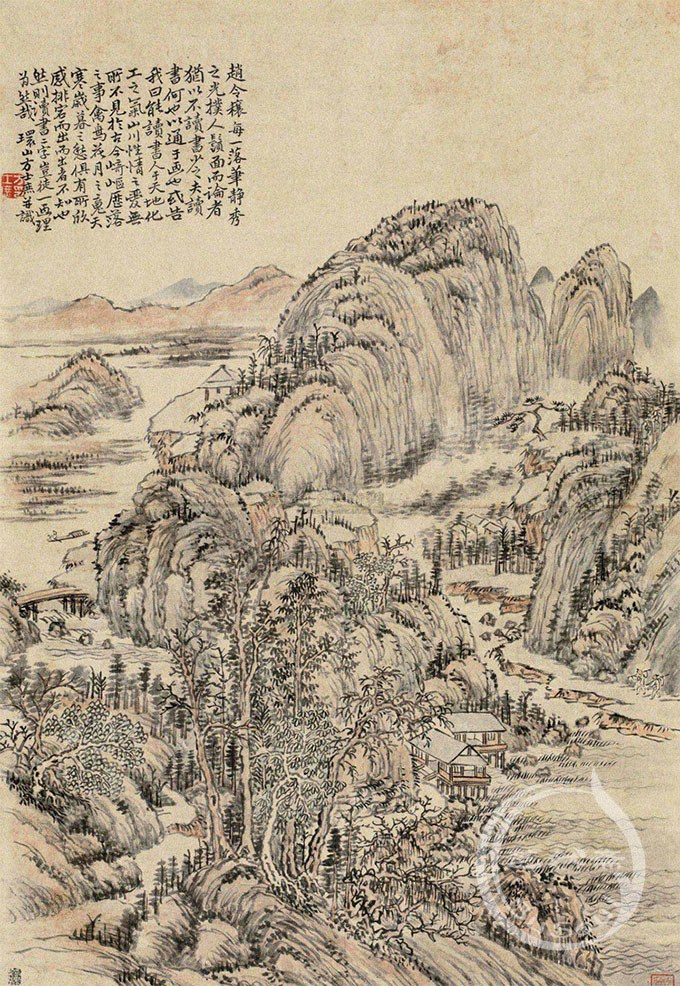 趙令穰每一落筆静秀
之光撲人鬚面而論者
猶以不讀書少之夫讀
書何也以通于画也或告
我曰能讀書人于天地化
工之氣山川性情之變無
所不見於古今崎嶇歷落
之事禽魚花月之竟天
寒歲暮之愁俱有所欣
感排宕而出而出者不知也
然則讀書二字豈徒一画理
为然哉 環山方士庶并識